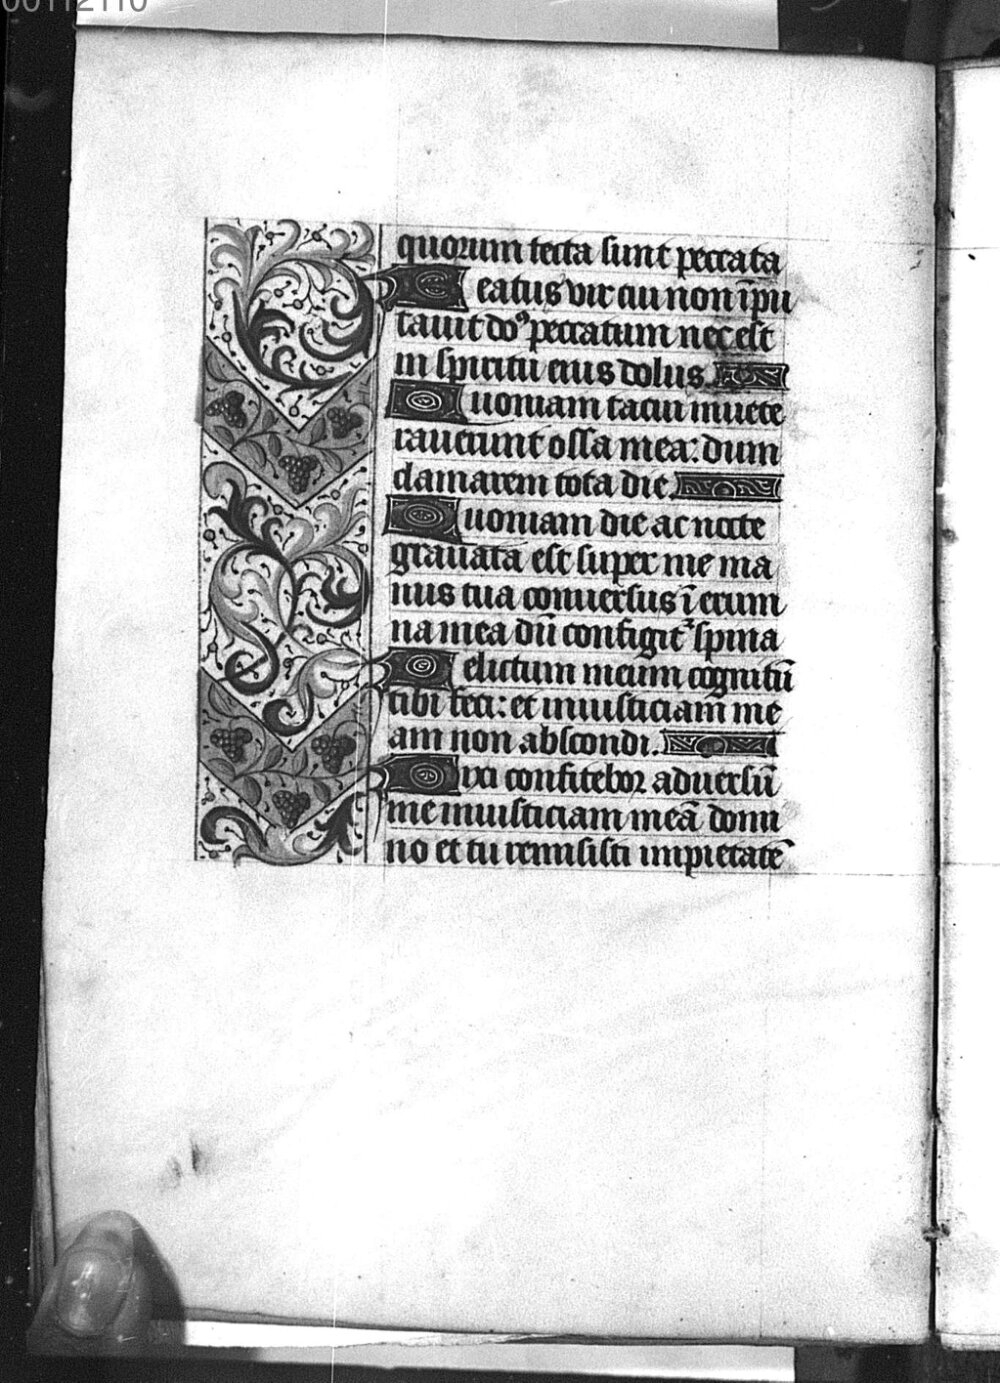 00112110
quorum tecta sunt peccata
Beatus vir cui non ĩpu
tauit doꝰ peccatum nec est
in spiritu eius dolus.
Quoniam tacui inuete
rauerunt ossa mea: dum
clamarem tota die.
Quoniam die ac nocte
grauata est super me ma
nus tua conuersus ĩ erum
na mea dũ configit᷑ spina
Delictum meum cognitũ
tibi feci: et iniusticiam me
am non abscondi.
Dixi confitebor aduersũ
me iniusticiam meã domi
no et tu remisisti impietatẽ